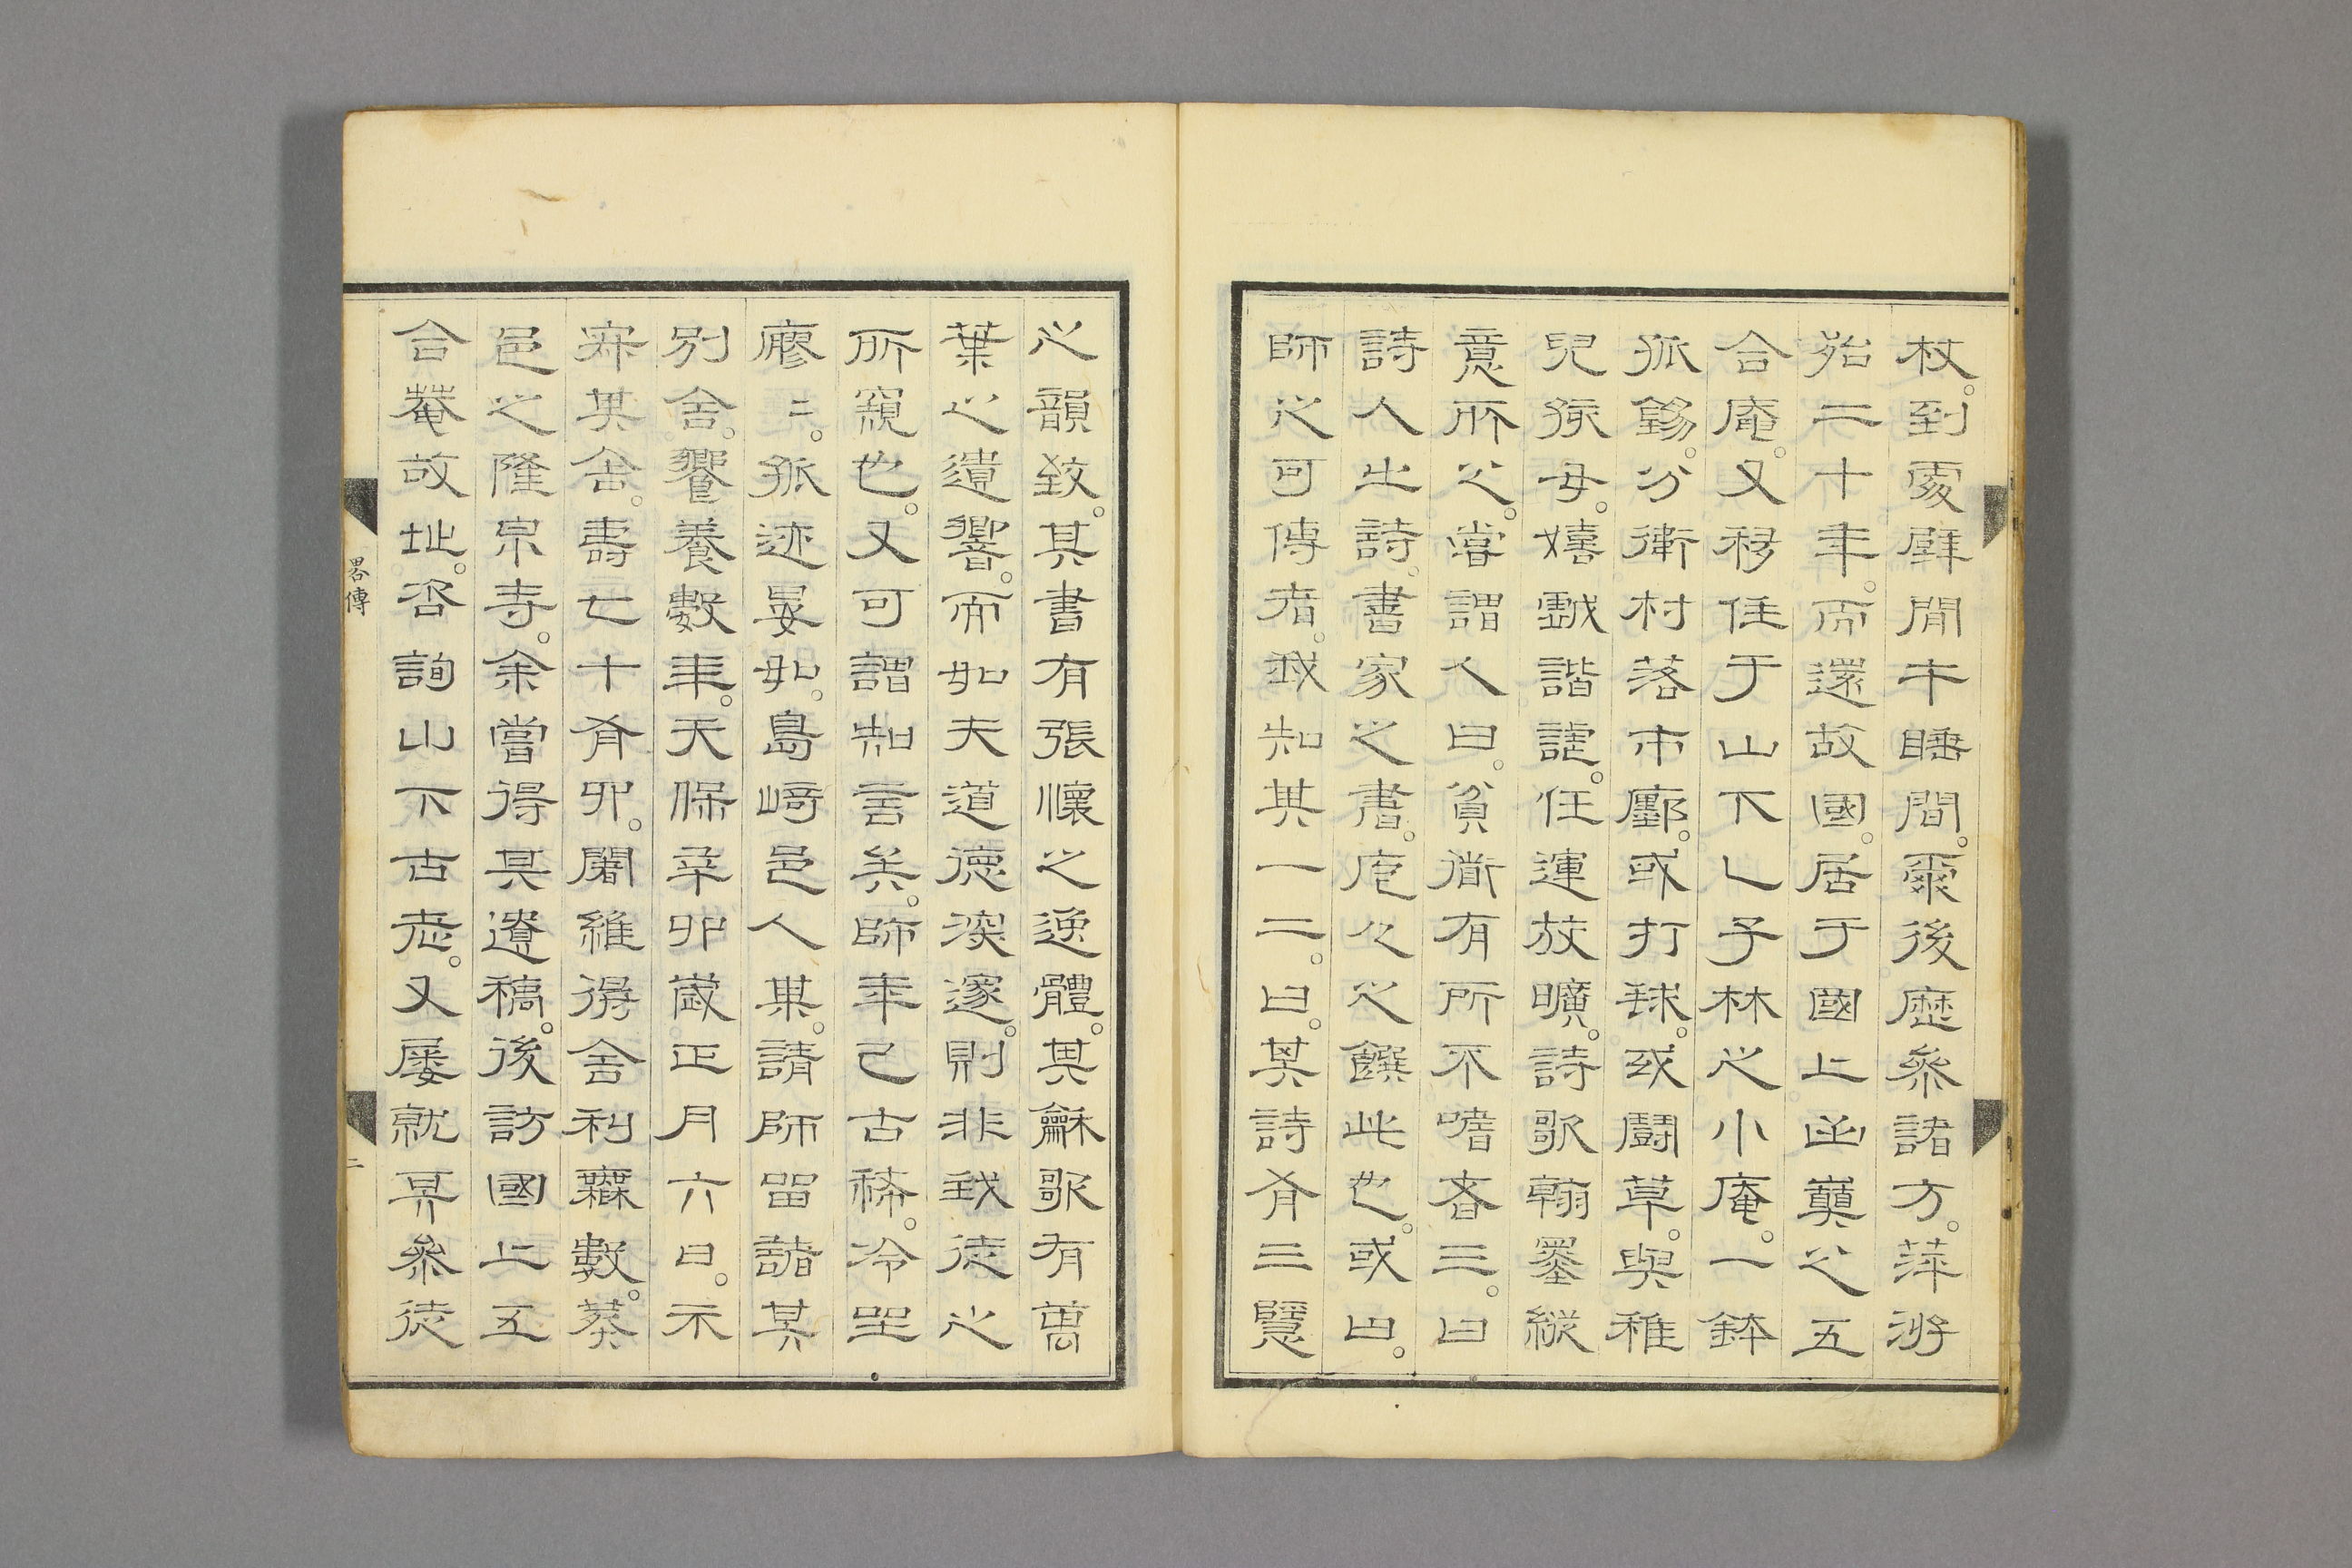 杖。到處壁間午睡間。爾後歷參諸方。萍游
殆二十年。而還故國。居于國上函巔之五
合庵。又移住于山下乙子林之小庵。一鉢
孤錫。分衛村落市廛。或打毬。或鬪草。與稚
兒孫母。嬉戲諧謔。任運放曠。詩歌翰墨縱
意所之。嘗謂人曰。貧衜有所不嗜者三。曰
詩人之詩。書家之書。庖人之饌此也。或曰。
師之可傳者。我知其一二。曰。其詩有三隱
之韻致。其書有張懷之逸體。其龢歌有萬
葉之遺響。而如夫道德深邃。則非我徒之
所窺也。又可謂知言矣。師年已古稀。冷坐
廖二。孤迹晏如。島崎邑人某。請師留諸其
別舍。饗養數年。天保辛卯歲正月六日。示
寂其舍。壽七十有四。闍維得舍利無數。葬
邑之隆泉寺。余嘗得其遺稿。後訪國上五
合菴故址。咨詢山下古老。又屢就其參徒
畧傳
二